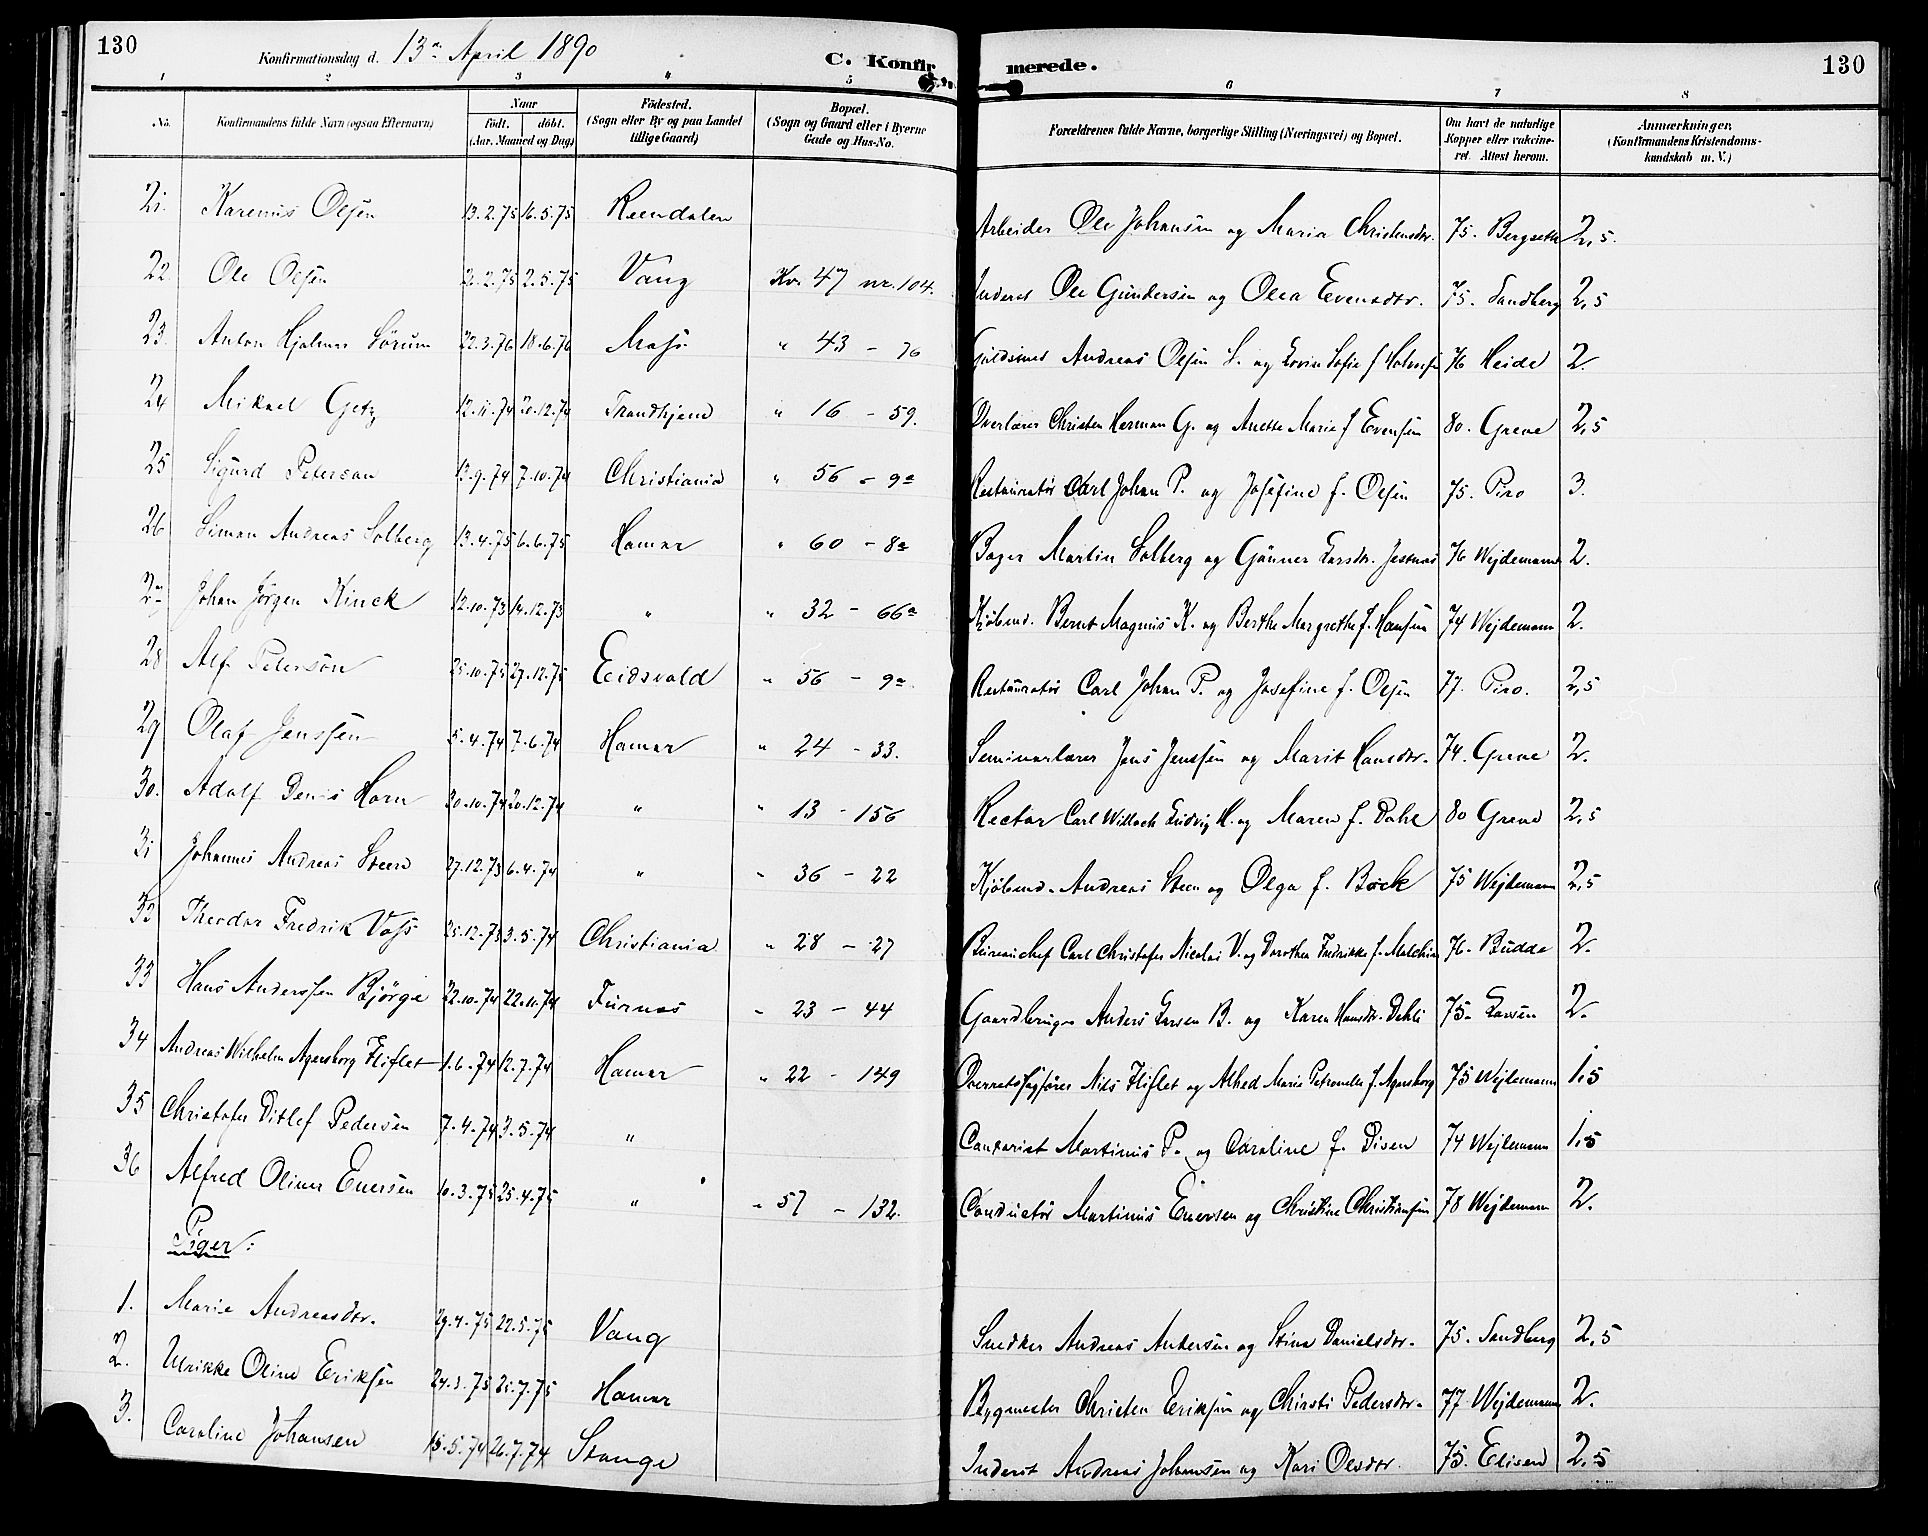 130
Konfirmationsdag d. 13de April 1890
C. Konfirmerede.
130
1 2 3 4 5 6 7 8
No. Konfirmandens fulde Navn (ogsaa Efternavn) Naar födt. döbt. (Aar, Maaned og Dag) Födested. (Sogn eller By og paa Landet tillige Gaard) Bopæl. (Sogn og Gaard eller i Byerne Gade og Hus-No. Forældrenes fulde Navne, borgerlige Stilling (Næringsvei) og Bopæl. Om havt de naturlige Kopper eller vakcineret. Attest herom. Anmærkninger. (Konfirmandens Kristendomskundskab m. V.)
21. Karenus Olsen 13.2.75 16.5.75 Rendalen Arbeider Ole Johansen og Maria Christensdtr. 75. Bergseth 2,5.
22 Ole Olsen 2.2.75 2.5.75 Vang Kv. 47 nr. 104. Inderst Ole Gundersen og Olea Evensdtr. 75. Sandberg 2,5
23. Anton Hjalmar Sörum 22.3.76 18.6.76 Moss " 43 - 76 Guldsmed Andreas Olsen S. og Lovise Sofie f. 76 Heide 2.
24 Mikael Getz 12.11.74 20.12.74 Trondhjem " 16 - 59. Overlærer Christen Herman G. og Anette Marie f Evensen 80. Greve 2,5
25 Sigurd Peterson 13.9.74 7.10.74 Christiania " 56 - 9a Restauratör Carl Johan P. og Josefine f. Olsen 75. Piro 3.
26 Simon Andreas Solberg 13.4.75 6.6.75 Hamar " 60 - 8a Bager Martin Solberg og Gunner Larsdtr. 76 Wejdemann 2.
27 Johan Jörgen Kinck 12.10.73 14.12.73 " " 32 - 66a Kjöbmd. Bernt Magnus K. og Berthe Margrethe f. Hansen 74 Wejdemann 2.
28 Alf Peterson 25.10.75 27.12.75 Eidsvold " 56 - 9a Restauratör Carl Johan P. og Josefine f. Olsen 77. Piro. 2,5
29 Olaf Jenssen 5.4.74 7.6.74 Hamar " 24 - 33. Seminarlærer Jens Jenssen og Marit Hansdtr. 74. Greve 2.
30. Adolf Denis Horn 30.10.74 20.12.74 " " 13 - 156 Rector Carl Willoch Ludvig H. og Maren f. Dahl 80 Greve 2,5
31 Johannes Andreas Steen 27.12.73 6.4.74 " " 36 - 22 Kjöbmd. Andreas Steen og Olga f. Böck 75 Wejdemann 2,5
33 Theodor Fredrik Voss 25.12.73 3.5.74 Christiania " 28 - 27 Bureauchef Carl Christofer Nicolai V. og Dorothea Fredrikke f. 76. Budde 2.
33 Hans Anderssen Bjørge 22.10.74 22.11.74 Furnes " 23 - 44 Gaardbruger Anders Larsen B. og Karen Hansdtr. Dehli 75. Larsen 2.
34 Andreas Wilhelm Agersborg Fliflet 1.6.74 12.7.74 Hamar " 22 - 149 Overretssagförer Nils Fliflet og Alhed Marie Petronelle f. Agersborg 75 Wejdemann 1,5
35 Christofer Ditlef Pedersen 7.4.74 3.5.74 " Contorist Martinus P. og Caroline f. Disen 74 Wejdemann 1,5
36 Alfred Oliver Enersen 10.3.75 25.4.75 " " 57 - 132. Conductör Martinus Enersen og Christine Christiansen 78 Wejdemann 2.
Piger:
1. Marie Andreasdtr. 29.4.75 22.5.75 Vang Snedker Andreas Andersen og Stina Danielsdtr. 75. Sandberg 2,5
2. Ulrikke Oline Eriksen 24.3.75 25.7.75 Hamar Bygmester Christen Eriksen og Chirsti Pedersdtr. 77 Wejdemann 2.
3. Caroline Johansen 15.5.74 26.7.74 Stange Inderst Andreas Johansen og Kari Olsdtr. 75. Elisen 2,5